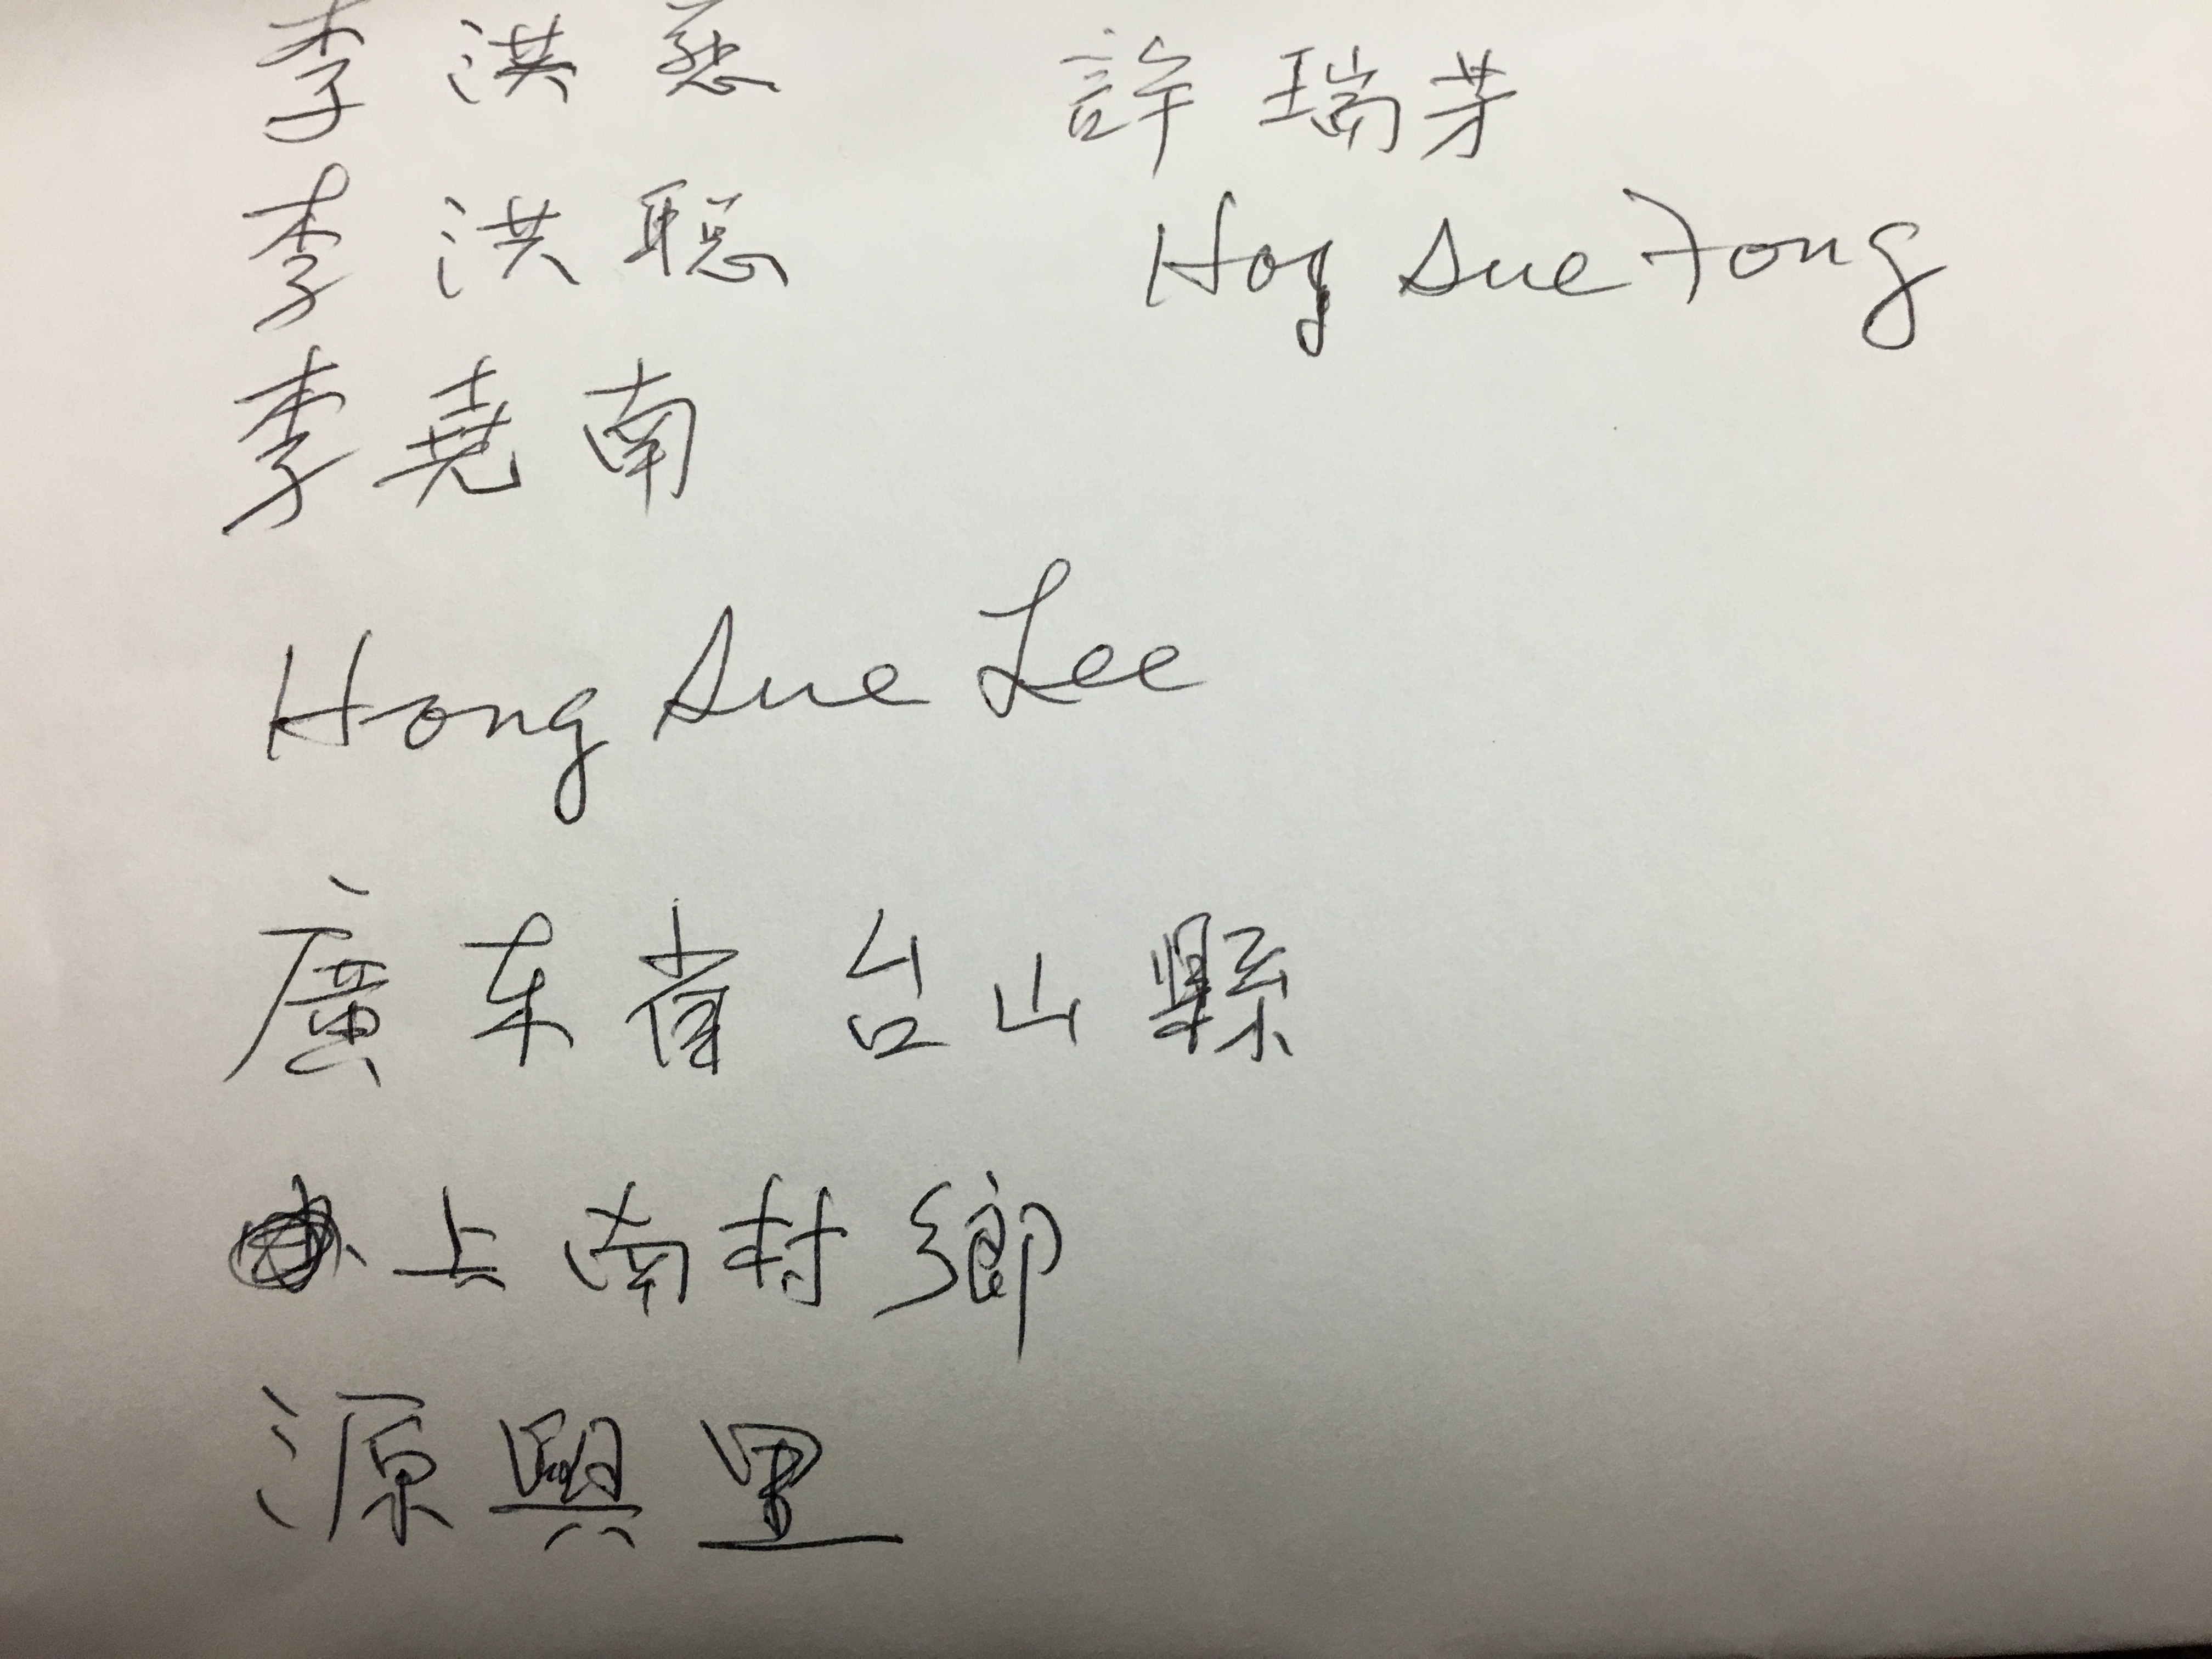 李洪慈 許瑞芳
李洪聪 Hoy Sue Fong
李堯南
Hong Sue Lee
廣东省台山縣
上南村鄉
源興里